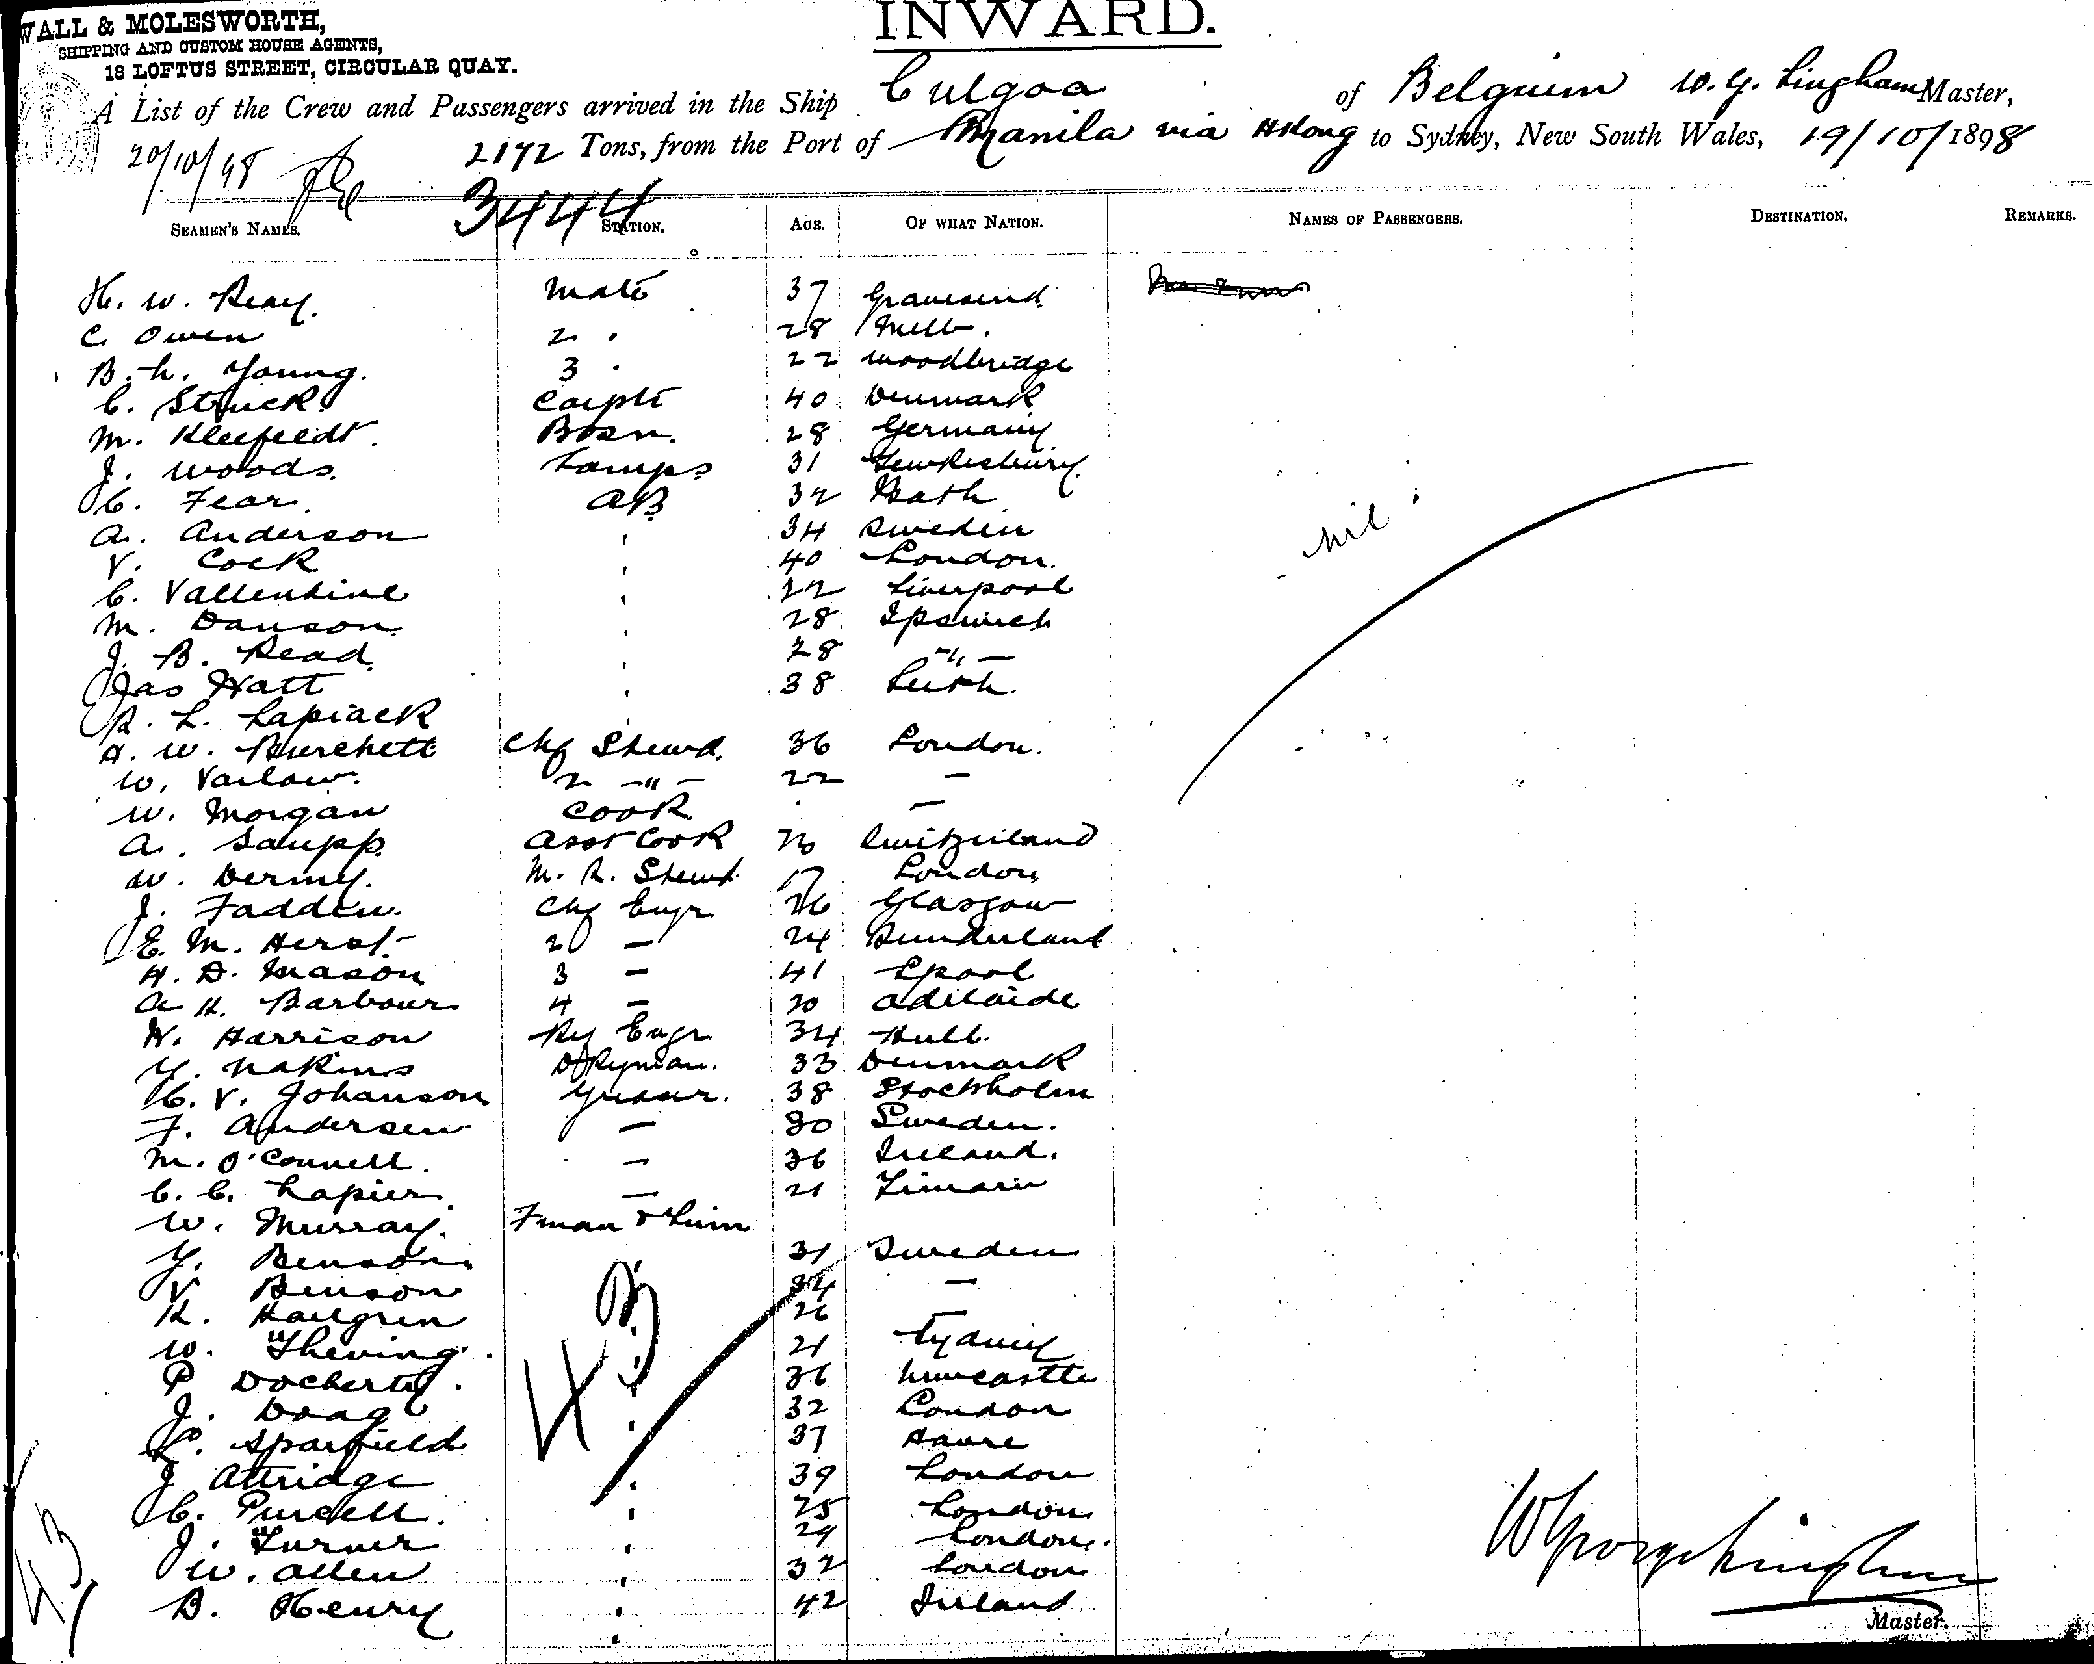 WALL & MOLESWORTH,
SHIPPING AND CUSTOM HOUSE AGENTS,
18 LOFTUS STREET, CIRCULAR QUAY.
INWARD.
A List of the Crew and Passengers arrived in the Ship Culgoa of Belgium W. G. Lingham Master,
20/10/98 2172 Tons, from the Port of Manila via HKong to Sydney, New South Wales, 19/10/1898
3444
SEAMEN'S NAMES. STATION. AGE. OF WHAT NATION. NAMES OF PASSENGERS. DESTINATION. REMARKS.
H. W. Reay. Mate 37 Gravesend
C. Owen 2 " 28 Melb.
B. L. Young. 3 " 22 Woodbridge
C. Struck Carptr 40 Denmark
M. Kleefeldt Bosn. 28 Germany
J. Woods. Lamps 31 Tewkesbury
C. Fear. AB 32 Bath
A. Anderson " 34 Sweden
V. Cock " 40 London.
C. Vallentine " 22 Liverpool
M. Dawson " 28 Ipswich
nil
J. B. Read " 28 - " -
Jas Hatt " 38 Leith.
R. L. Lapiack "
A. W. Burchett Chf Stewd. 36 London.
W. Varlow. 2 - " - 22 -
W. Morgan Cook " -
A. Saupp Asst Cook 26 Switzerland
W. Dermy. M. R. Stewd 17 London
J. Fadden. Chf Engr 36 Glasgow
E. M. Herst 2 - 24 Sunderland
H. D. Mason 3 - 41 Lpool
A. H. Barbour 4 - 30 Adelaide
W. Harrison Rfg Engr 34 Hull.
Y. Nakins Dkyman. 33 Denmark
C. V. Johanson Greaser. 38 Stockholm
F. Andersen - 30 Sweden.
M. O'Connell. - 36 Ireland.
C. C. Lapier - 21 Timaru
W. Murray. Fman & Trim
Y. Benson 31 Sweden
V. Benson 34 -
K. Hallgren 26 -
W. Thewing. 21 Sydney
P. Docherty. 36 Newcastle
J. Doag 32 London
P. Sparfield 37 Havre
J. Attridge " 39 London
C. Purcell. " 25 London
J. Turner " 29 London.
W. Allen " 32 London
B. Henry " 42 Ireland
43
43
W George Lingham
Master.